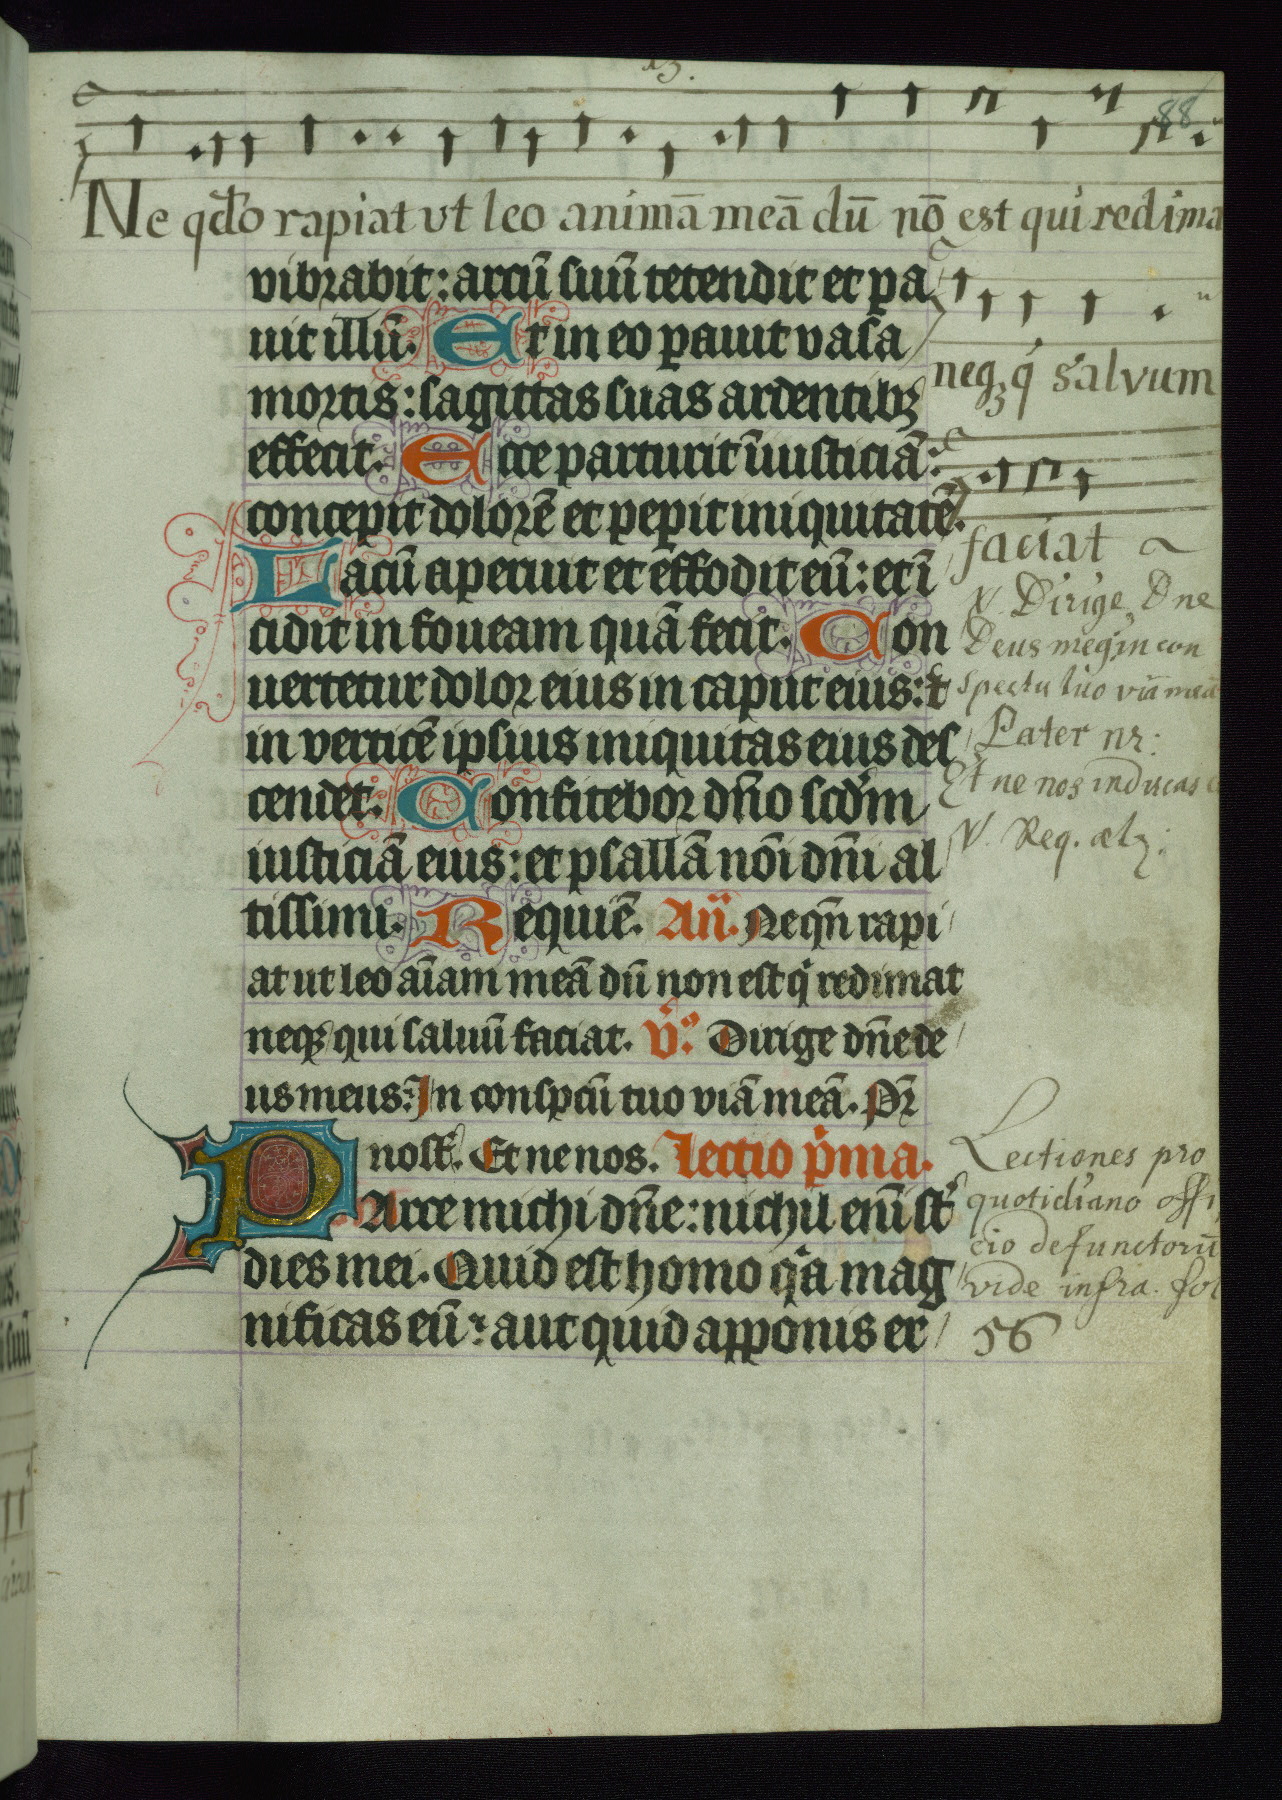 88
Ne qdo rapiat vt leo animā meā dū nō est qui redima
vibrabit: arcū suū tetendit et pa
uit illū. Et in eo pauit vasa
mortis: sagittas suas ardentibꝫ
effecit. Ecce parturit īiusticiā:
concepit dolorē et pepit iniquitatē.
Lacū aperuit et effodit eū: et ī
cidit in foueam quā fecit. Con
uertetur dolor eius in caput eius: et
in verticē ipsius iniquitas eius des
cendet. Confitebor dño scdm
iusticiā eius: et psallā nōi dñi al
tissimi. Requiē. Añ. Neqn̄ rapi
at ut leo aīam meā dū non est q̇ redimat
neqꝫ qui saluū faciat. V̊. Dirige dñe de
us meus: In conspcū tuo viā meā. Pr̄
nost̄. Et ne nos. Lectio p̄ma.
Parce michi dñe: nichil enī st̄
dies mei. Quid est homo qa mag
nificas eū: aut quid apponis er
neqꝫ q́ salvum
faciat
V. Dirige Dne
Deus meꝯ in con
spectu tuo viā meā
Pater nr:
Et ne nos inducas
V. Req. æt:
Lectiones pro
quotidiano offi
cio defunctorū
vide infra. fol
56